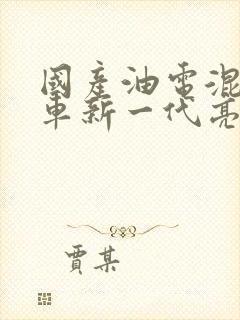 國產油電混
車新一代亮
賈某